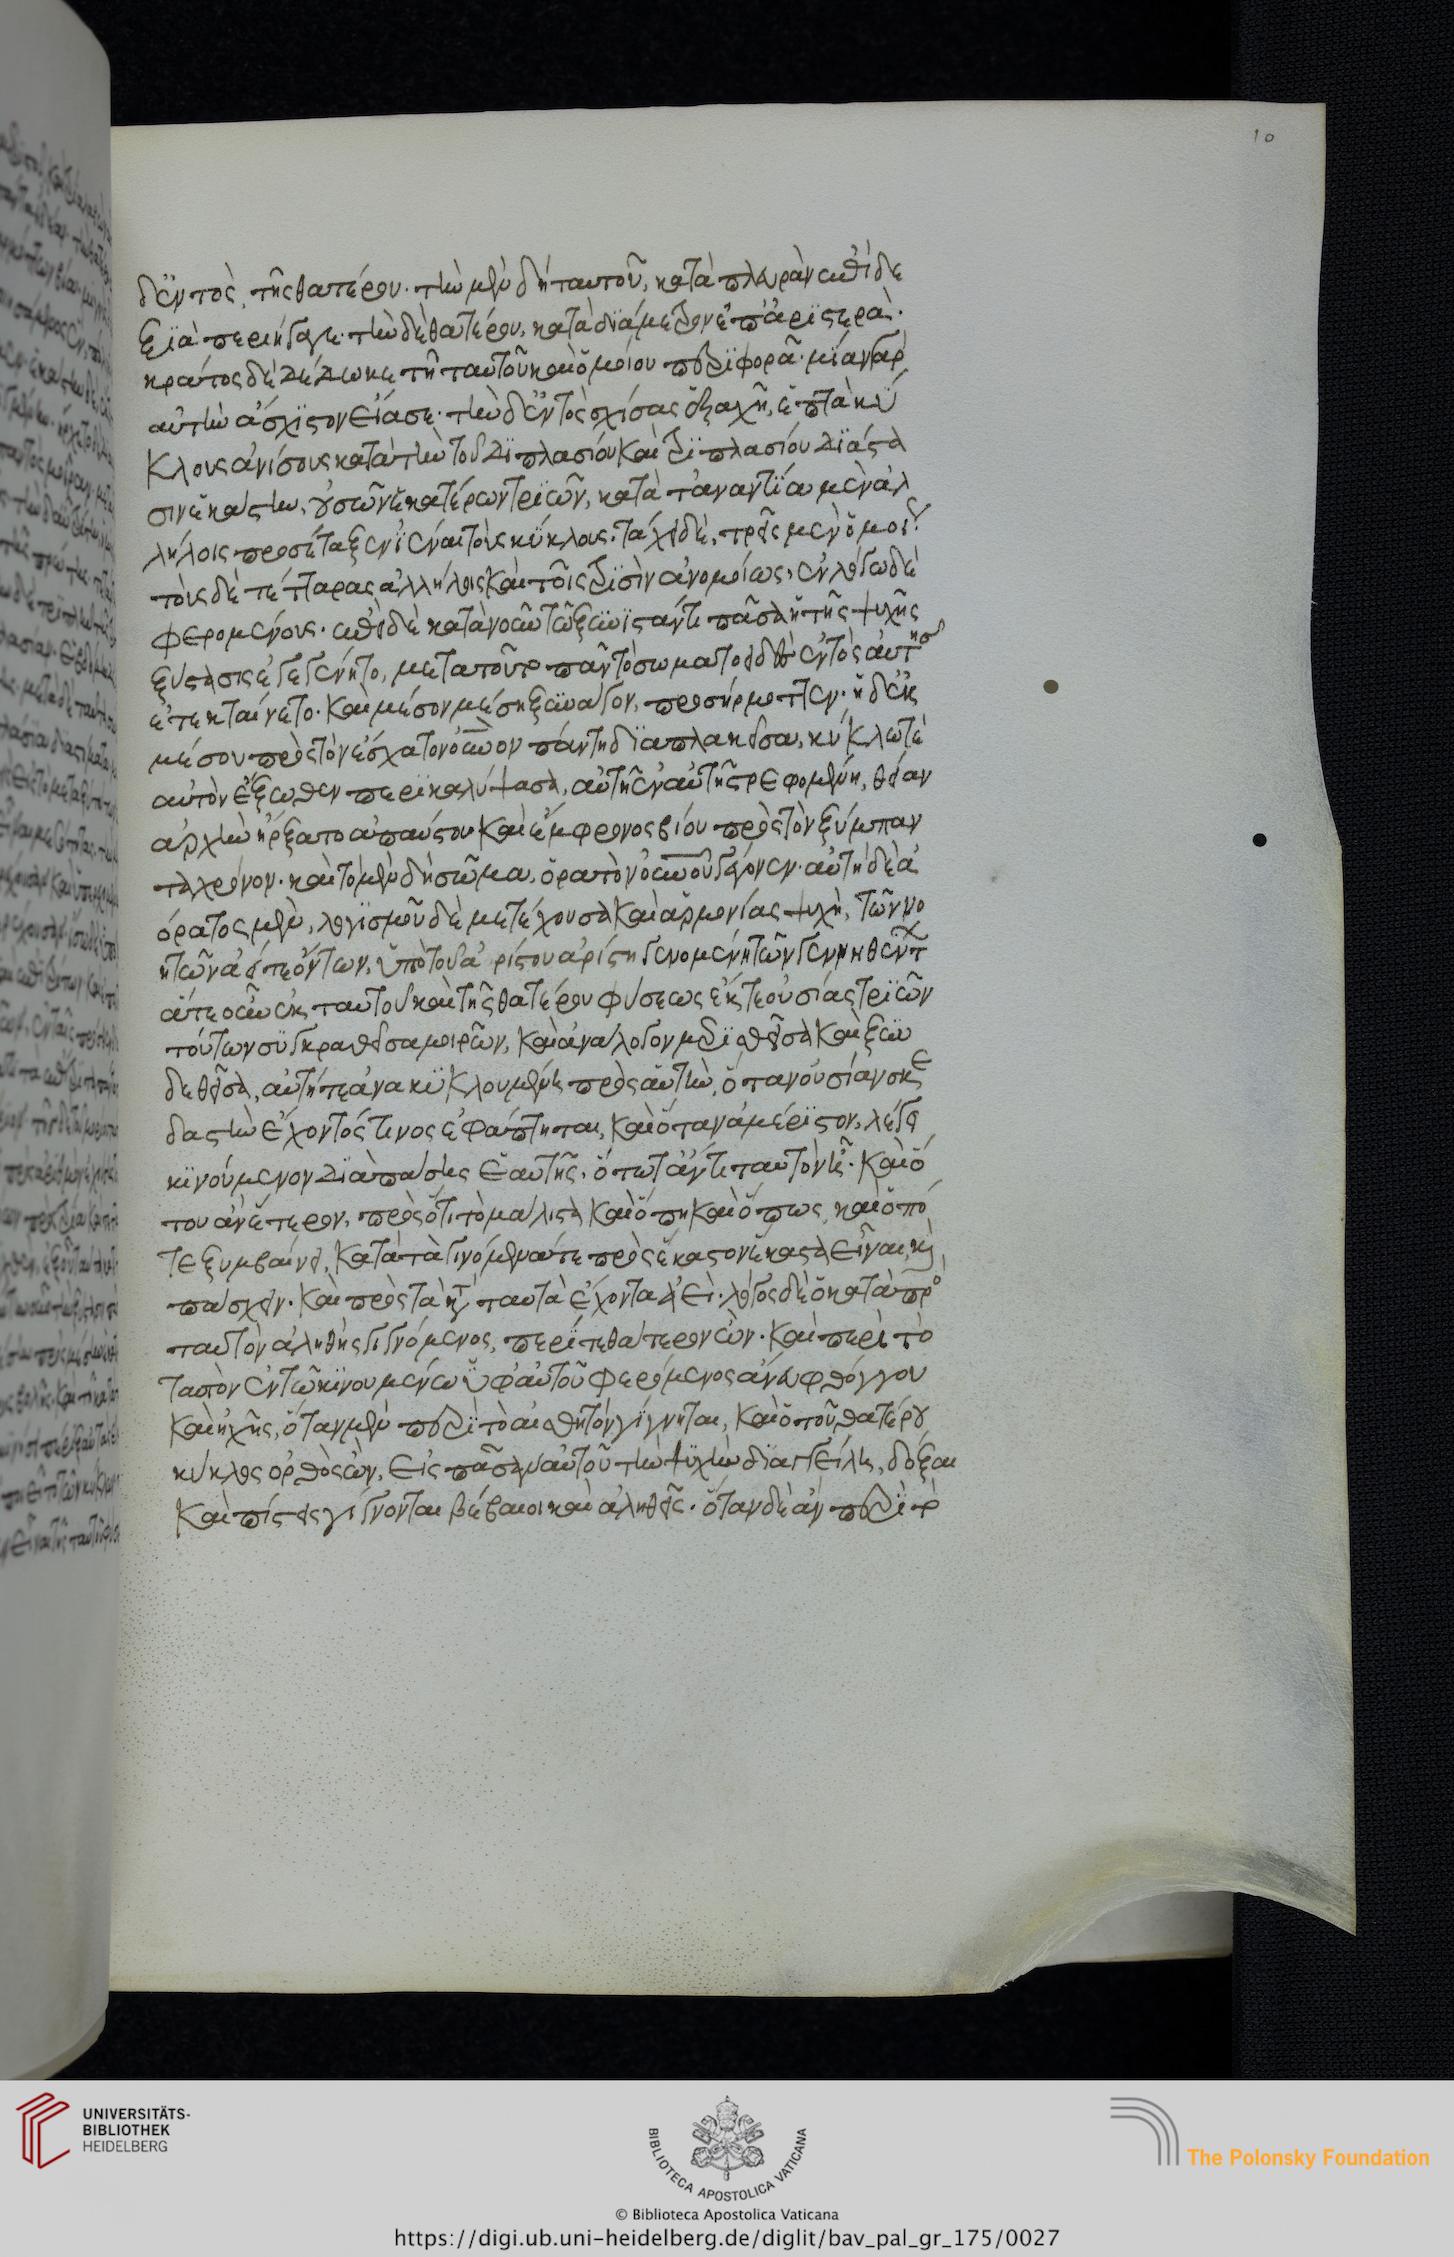 δ' ἐντὸς, τῆς θατέρου. τὴν μὲν δὴ ταυτοῦ, κατὰ πλευρὰν ἐπὶ δε
ξιὰ περιήγαγε. τὴν δὲ θατέρου, κατὰ διάμετρον ἐπ' ἀριστερά.
κράτος δὲ δέδωκε τῇ ταυτοῦ καὶ ὁμοίου περιφορᾶ. μίαν γὰρ
αὐτὴν ἄσχιστον εἴασε. τὴν δ' ἐντὸς σχίσας ἑξαχῆ, ἑπτὰ κύ
κλους ἀνίσους κατὰ τὴν τοῦ διπλασίου καὶ τριπλασίου διάστα
σιν ἑκάστην, οὐσῶν ἑκατέρων τριῶν, κατὰ τἀναντία μὲν ἀλ
λήλοις προσέταξεν ἰέναι τοὺς κύκλους. τάχει δὲ, τρεῖς μὲν ὁμοίως
τοὺς δὲ τέτταρας ἀλλήλοις καὶ τοῖς τρισὶν ἀνομοίως, ἐν λόγω δὲ
φερομένους. ἐπεὶ δὲ κατὰ νοῦν τῶ ξυνιστάντι πᾶσα ἡ τῆς ψυχῆς
ξύστασις ἐγεγένητο, μετὰ τοῦτο πᾶν τὸ σωματοειδὲς ἐντὸς αὐτῆς
ἐτεκταίνετο. καὶ μέσον μέση ξυνάγον, προσήρμοττεν. ἡ δ' ἐκ
μέσου πρὸς τὸν ἔσχατον οὐνὸν πάντη διαπλακεῖσα, κύκλω τὲ
αὐτὸν ἔξωθεν περικαλύψασα, αὐτὴ ἐν αὐτῆ στρεφομένη, θείαν
ἀρχὴν ἤρξατο ἀπαύστου καὶ ἔμφρονος βίου πρὸς τὸν ξύμπαν
τα χρόνον. καὶ τὸ μὲν δὴ σῶμα, ὁρατὸν οὐνοῦ γέγονεν. αὐτὴ δὲ ἀ
όρατος μὲν, λογισμοῦ δὲ μετέχουσα καὶ ἁρμονίας ψυχὴ, τῶν νο
ητῶν ἀεί τε ὄντων, ὑπὸ τοῦ ἀρίστου ἀρίστη γενομένη τῶν γεννηθέντων
ἅτε οὖν ἐκ ταυτοῦ καὶ τῆς θατέρου φύσεως ἔκ τε οὐσίας τριῶν
τούτων συγκραθεῖσα μοιρῶν, καὶ ἀνάλογον μερισθεῖσα καὶ ξυν
δεθεῖσα, αὐτή τε ἀνακυκλουμένη πρὸς αὑτὴν, ὅταν οὐσίαν σκε
δαστὴν ἔχοντός τινος ἐφάπτηται, καὶ ὅταν ἀμέριστον, λέγει
κινούμενον διὰ πάσης ἑαυτῆς. ὅτω τ' ἄν τι ταυτὸν ἦ. καὶ ὅ
του ἂν ἕτερον, πρὸς ὅτι τὸ μάλιστα καὶ ὅπη καὶ ὅπως, καὶ ὁπό
τε ξυμβαίνει, κατὰ τὰ γινόμενά τε πρὸς ἕκαστον ἕκαστα εἶναι, καὶ
πάσχειν. καὶ πρὸς τὰ κατὰ ταυτὰ ἔχοντα ἀεὶ. λόγος δὲ ὁ κατὰ
ταυτὸν ἀληθὴς γιγνόμενος, περί τε θάτερον ὢν. καὶ περὶ τὸ
ταυτὸν ἐν τῶ κινουμένω ὑφ' αὑτοῦ φερόμενος ἄνευ φθόγγου
καὶ ἠχῆς, ὅταν μὲν περὶ τὸ αἰσθητὸν γίγνηται, καὶ ὁ τοῦ θατέρου
κύκλος ὀρθὸς ὢν, εἰς πᾶσαν αὐτοῦ τὴν ψυχὴν διαγγείλη, δόξαι
καὶ πίστεις γίγνονται βέβαιοι καὶ ἀληθεῖς. ὅταν δὲ ἂν περὶ τὸ
10
UNIVERSITÄTS-
BIBLIOTHEK
HEIDELBERG
BIBLIOTECA APOSTOLICA VATICANA
The Polonsky Foundation
© Biblioteca Apostolica Vaticana
https://digi.ub.uni-heidelberg.de/diglit/bav_pal_gr_175/0027